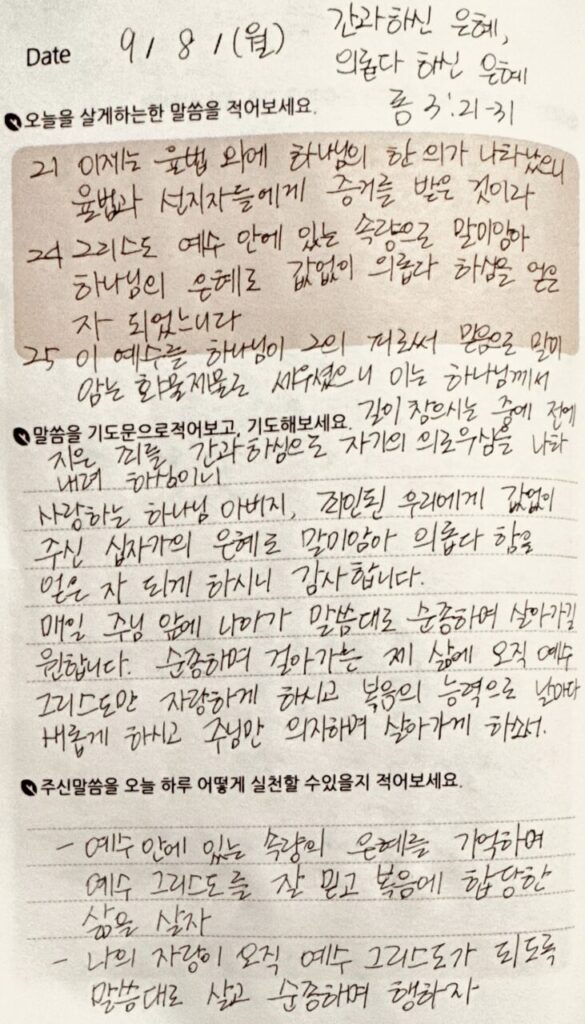 Date 9 / 8 / (월)
간과하신 은혜,
의롭다 하신 은혜
롬 3:21-31
오늘을 살게하는한 말씀을 적어보세요.
21 이제는 율법 외에 하나님의 한 의가 나타났으니
율법과 선지자들에게 증거를 받은 것이라
24 그리스도 예수 안에 있는 속량으로 말미암아
하나님의 은혜로 값없이 의롭다 하심을 얻은
자 되었느니라
25 이 예수를 하나님이 그의 피로써 믿음으로 말미
암는 화목제물로 세우셨으니 이는 하나님께서
길이 참으시는 중에 전에
말씀을 기도문으로적어보고, 기도해보세요.
지은 죄를 간과하심으로 자기의 의로우심을 나타
내려 하심이니
사랑하는 하나님 아버지, 죄인된 우리에게 값없이
주신 십자가의 은혜로 말미암아 의롭다 함을
얻은 자 되게 하시니 감사합니다.
매일 주님 앞에 나아가 말씀대로 순종하며 살아가길
원합니다. 순종하며 걸어가는 제 삶에 오직 예수
그리스도만 자랑하게 하시고 복음의 능력으로 날마다
새롭게 하시고 주님만 의지하며 살아가게 하소서.
주신말씀을 오늘 하루 어떻게 실천할 수있을지 적어보세요.
- 예수 안에 있는 속량의 은혜를 기억하며
예수 그리스도를 잘 믿고 복음에 합당한
삶을 살자
- 나의 자랑이 오직 예수 그리스도가 되도록
말씀대로 살고 순종하며 행하자